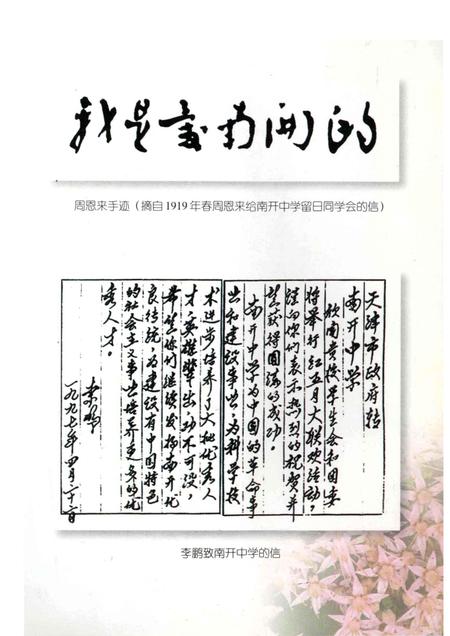 我是爱南开的
周恩来手迹（摘自1919年春周恩来给南开中学留日同学会的信）
天津市政府转
南开中学
欣闻贵校学生会和团委
将举行红五月大联欢活动，
谨向你们表示热烈的祝贺并
望获得圆满的成功。
南开中学为中国的革命事
业和建设事业，为科学技
术进步培养了大批优秀人
才，英模辈出，功不可没，
希望你们继续发扬南开优
良传统，为建设有中国特色
的社会主义事业培养更多的优
秀人才。
李鹏
一九九七年四月二十二日
李鹏致南开中学的信